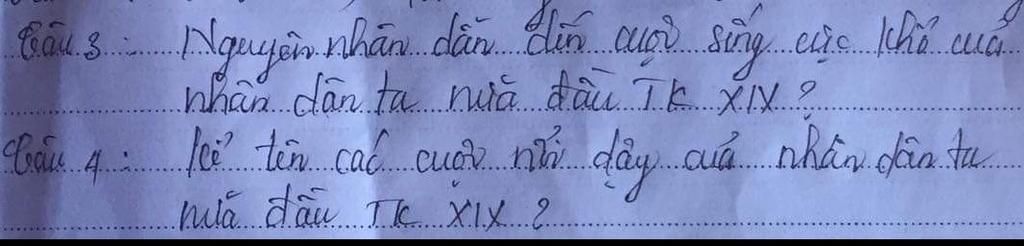 Câu 3: Nguyên nhân dẫn đến cuộc sống cực khổ của
nhân dân ta nửa đầu TK XIX?
Câu 4: Kể tên các cuộc nổi dậy của nhân dân ta
nửa đầu TK XIX?